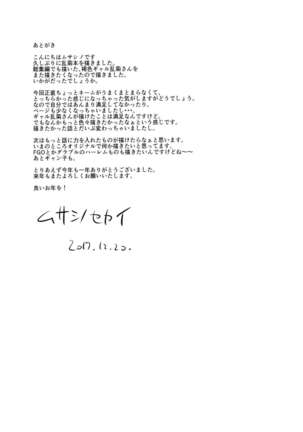 あとがき
こんにちはムサシノです
久しぶりに乱菊本を描きました。
総集編でも描いた、褐色ギャル乱菊さんを
また描きたくなったので描きました。
いかがだったでしょうか。
今回正直ちょっとネームがうまくまとまらなくて、
とっちらかった感じになっちゃった気がしますがどうでしょう。
なので自分ではあんまり満足してなかったり。
ページも少なくなっちゃいましたし・・・。
ギャル乱菊さんが描けたことは満足なんですけど、
でもなんかもっと色々描きたかったなぁという感じです。
描きたかった話とだいぶ変わっちゃいましたし。
次はもっと話に力を入れたものが描けたらなぁと思います。
いまのところオリジナルで何か描きたいと思ってます。
FGOとかグラブルのハーレムものも描きたいんですけどね〜〜
あとギャン子も。
とりあえず今年も一年ありがとうございました。
来年もまたよろしくお願いいたします。
良いお年を！
ムサシノセカイ
2017.12.20.